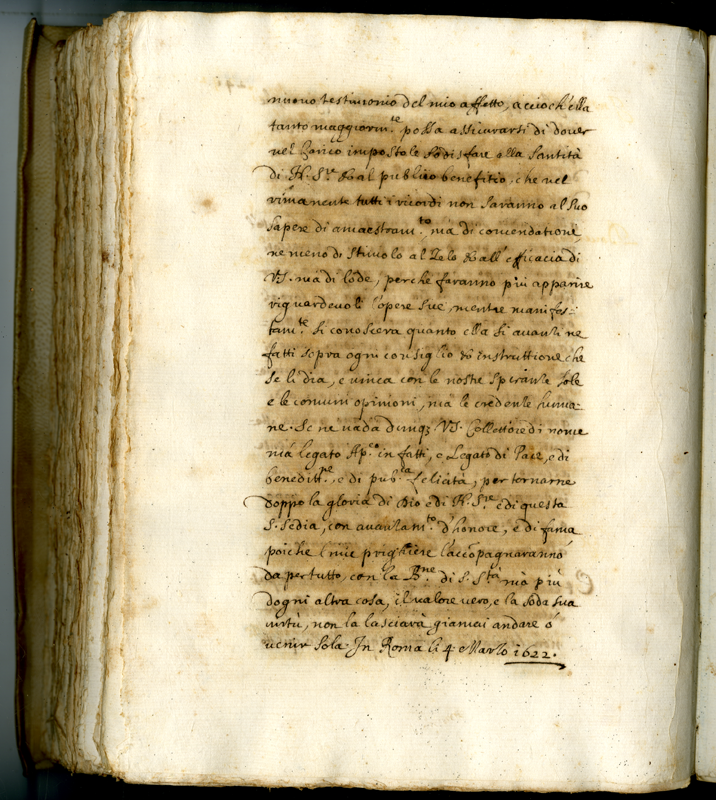 nuovo testimonio del mio affetto, accioch'ella
tanto maggiorm.te possa assicurarsi di dover
nel carico impostole sodisfare alla Santità
di N. S.re et al publico benefitio, che nel
rimanente tutti i ricordi non saranno al suo
sapere di amaestram.to ma di comendatione,
ne meno di stimolo al zelo et all'efficacia di
VS. ma di lode, perche faranno più apparire
riguardevoli l'opere sue, mentre manifes-
tam.te si conoscerà quanto ella si avanzi ne
fatti sopra ogni consiglio et instruttione che
se li dia, e vinca con le nostre speranze sole
e le comuni opinioni, ma le credenze huma-
ne. Se ne vada dunq; VS. Collettore di nome
ma legato Ap.co in fatti, e Legato di Pace, e di
beneditt.ne, e di pub.ca felicità, per tornarne
doppo la gloria di Dio e di N. S.re e di questa
S. Sedia, con avanzam.to d'honore, e di fama
poiche l mie preghiere l'accompagnaranno
da per tutto, con la B.ne di S. S.tà ma più
dogni altra cosa, il valore vero, e la soda sua
virtù, non la lasciarà giamai andare ò
venir sola. In Roma li 4 Marzo 1622.